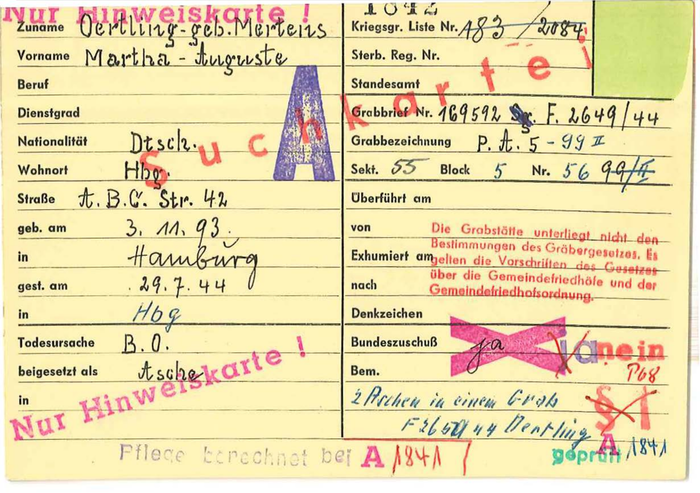 Nur Hinweiskarte !
Suchkartei
A
Zuname Oertling-geb.Mertens
Vorname Martha-Auguste
Beruf
Dienstgrad
Nationalität Dtsch.
Wohnort Hbg.
Straße A.B.C. Str. 42
geb. am 3.11.93.
in Hamburg
gest. am 29.7.44
in Hbg
Todesursache B.O.
beigesetzt als Asche
in
Nur Hinweiskarte !
1842
Kriegsgr. Liste Nr. 183/2084
Sterb. Reg. Nr.
Standesamt
Grabbrief Nr. 169592 F. 2649/44
Grabbezeichnung P.A.5-99 II
Sekt. 55 Block 5 Nr. 56 99/II
Überführt am
von
Exhumiert am
nach
Die Grabstätte unterliegt nicht den
Bestimmungen des Gräbergesetzes. Es
gelten die Vorschriften des Gesetzes
über die Gemeindefriedhöfe und der
Gemeindefriedhofsordnung.
Denkzeichen
Bundeszuschuß ja ja nein
Bem. P68
2 Aschen in einem Grab
§ 1
Oertling
geprüft A 1841
Pflege berechnet bei A 1841